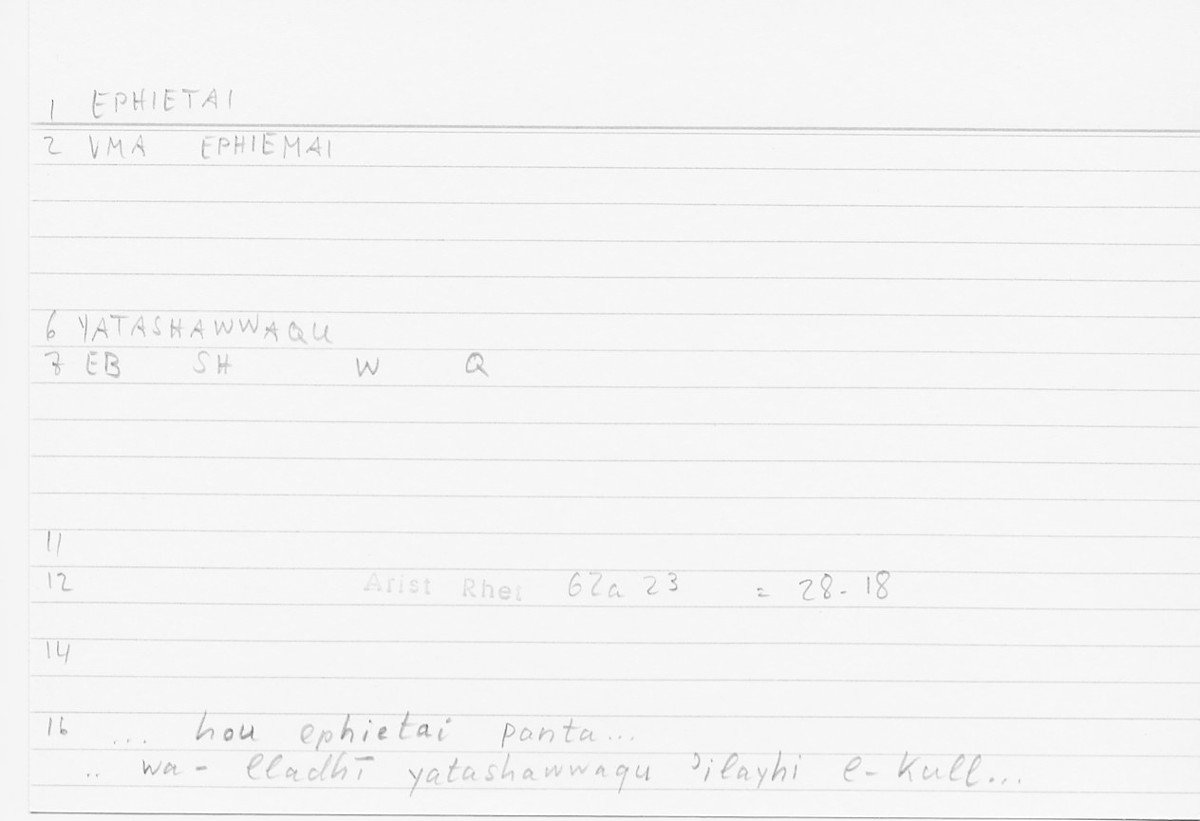 1 EPHIETAI
2 VMA EPHIEMAI
6 YATASHAWWAQU
7 EB SH W Q
11
12 Arist Rhet 62a 23 = 28-18
14
16 ... hou ephietai panta...
.. wa- lladhī yatashawwaqu ʾilayhi l-kull...